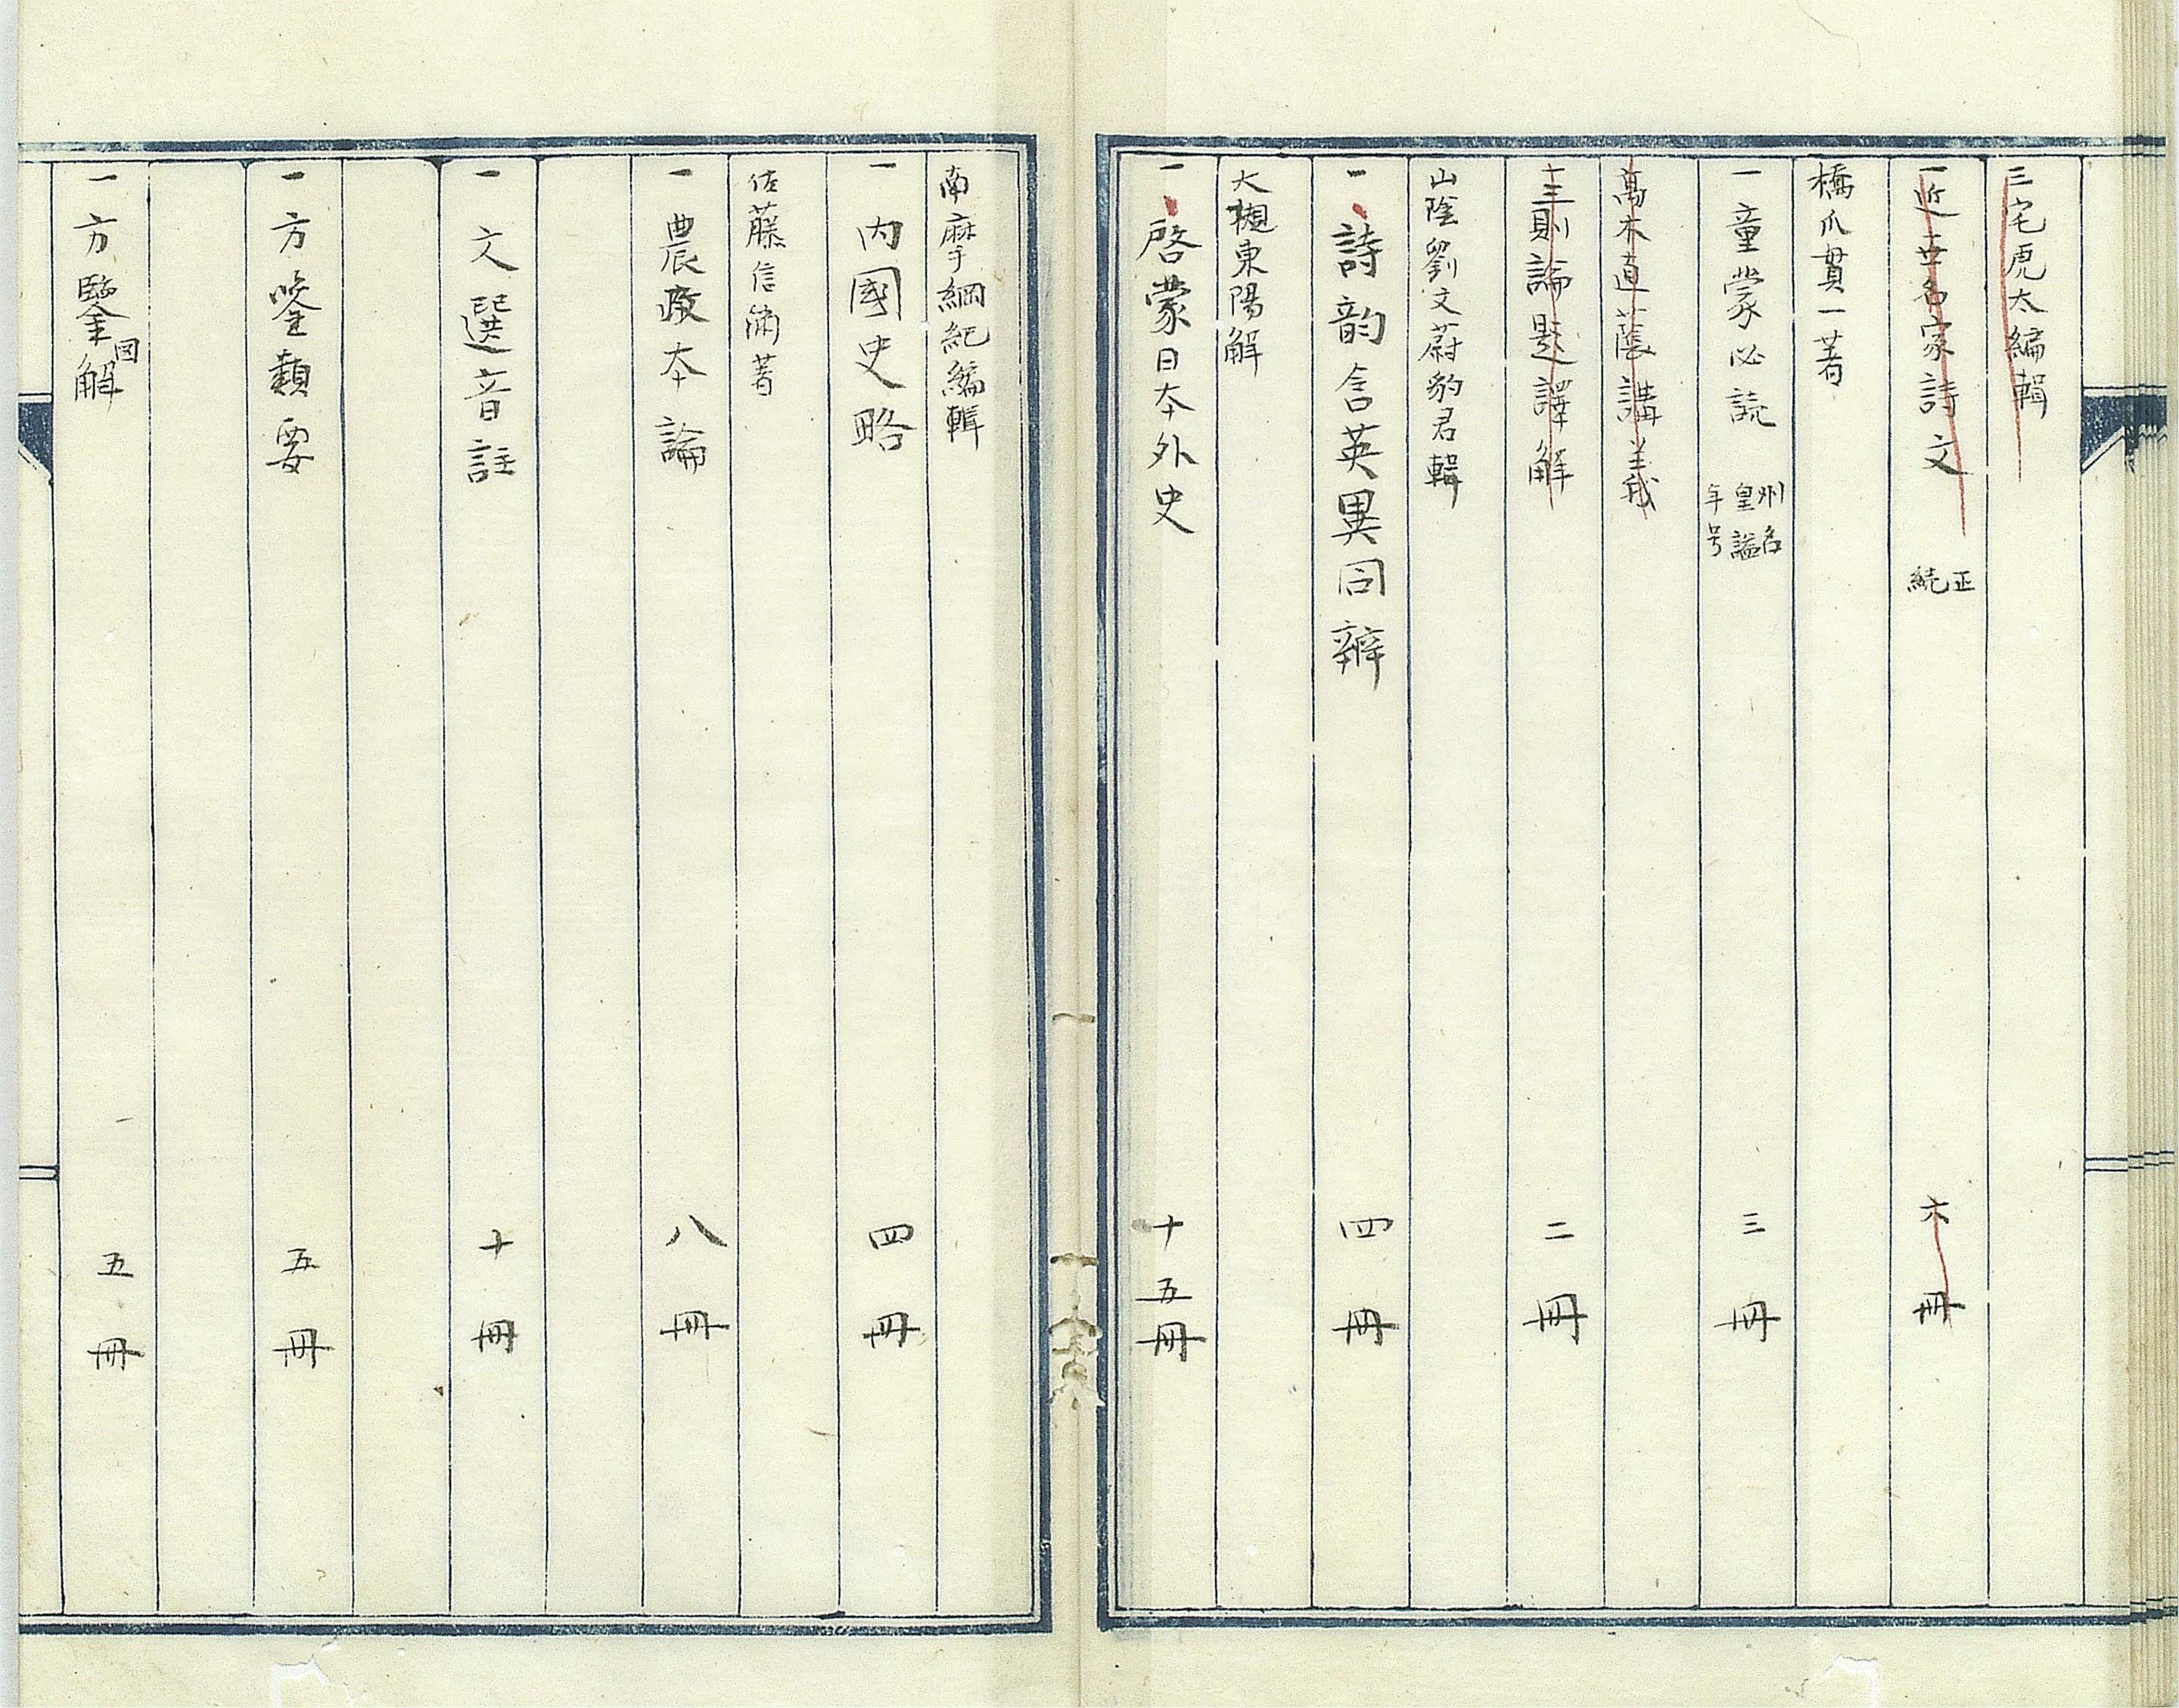 三宅虎太編輯
一近世名家詩文 正続 六冊
橋爪貫一著
一童蒙必読 州名 皇謚 年号 三冊
高木直蔭講義
一三則論題譯解 二冊
山陰劉文蔚豹君輯
一詩韵含英異同辨 四冊
大槻東陽解
一啓蒙日本外史 十五冊
南摩綱紀編輯
一内國史略 四冊
佐藤信淵著
一農政本論 八冊
一文選音註 十冊
一方鑒類要 五冊
一方鑒図解 五冊